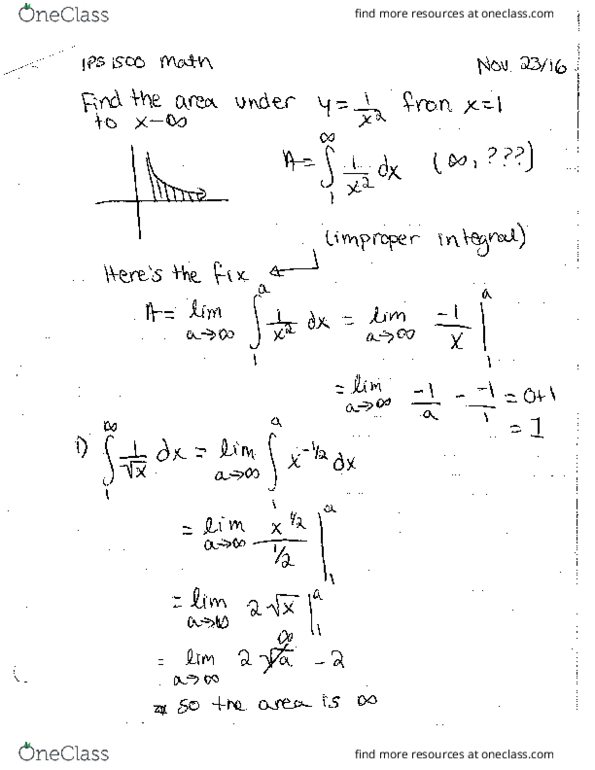 OneClass
find more resources at oneclass.com
IPS 1500 Math
Nov. 23/16
Find the area under y = 1/x² from x=1
to x–∞
A = ∫₁^∞ 1/x² dx (∞, ???)
(improper integral)
Here's the fix
A = lim a→∞ ∫₁^a 1/x² dx = lim a→∞ -1/x |₁^a
= lim a→∞ -1/a - -1/1 = 0+1
= 1
1) ∫₁^∞ 1/√x dx = lim a→∞ ∫₁^a x^-1/2 dx
= lim a→∞ x^1/2 / 1/2 |₁^a
= lim a→∞ 2√x |₁^a
= lim a→∞ 2√a ∞ - 2
so the area is ∞
OneClass
find more resources at oneclass.com